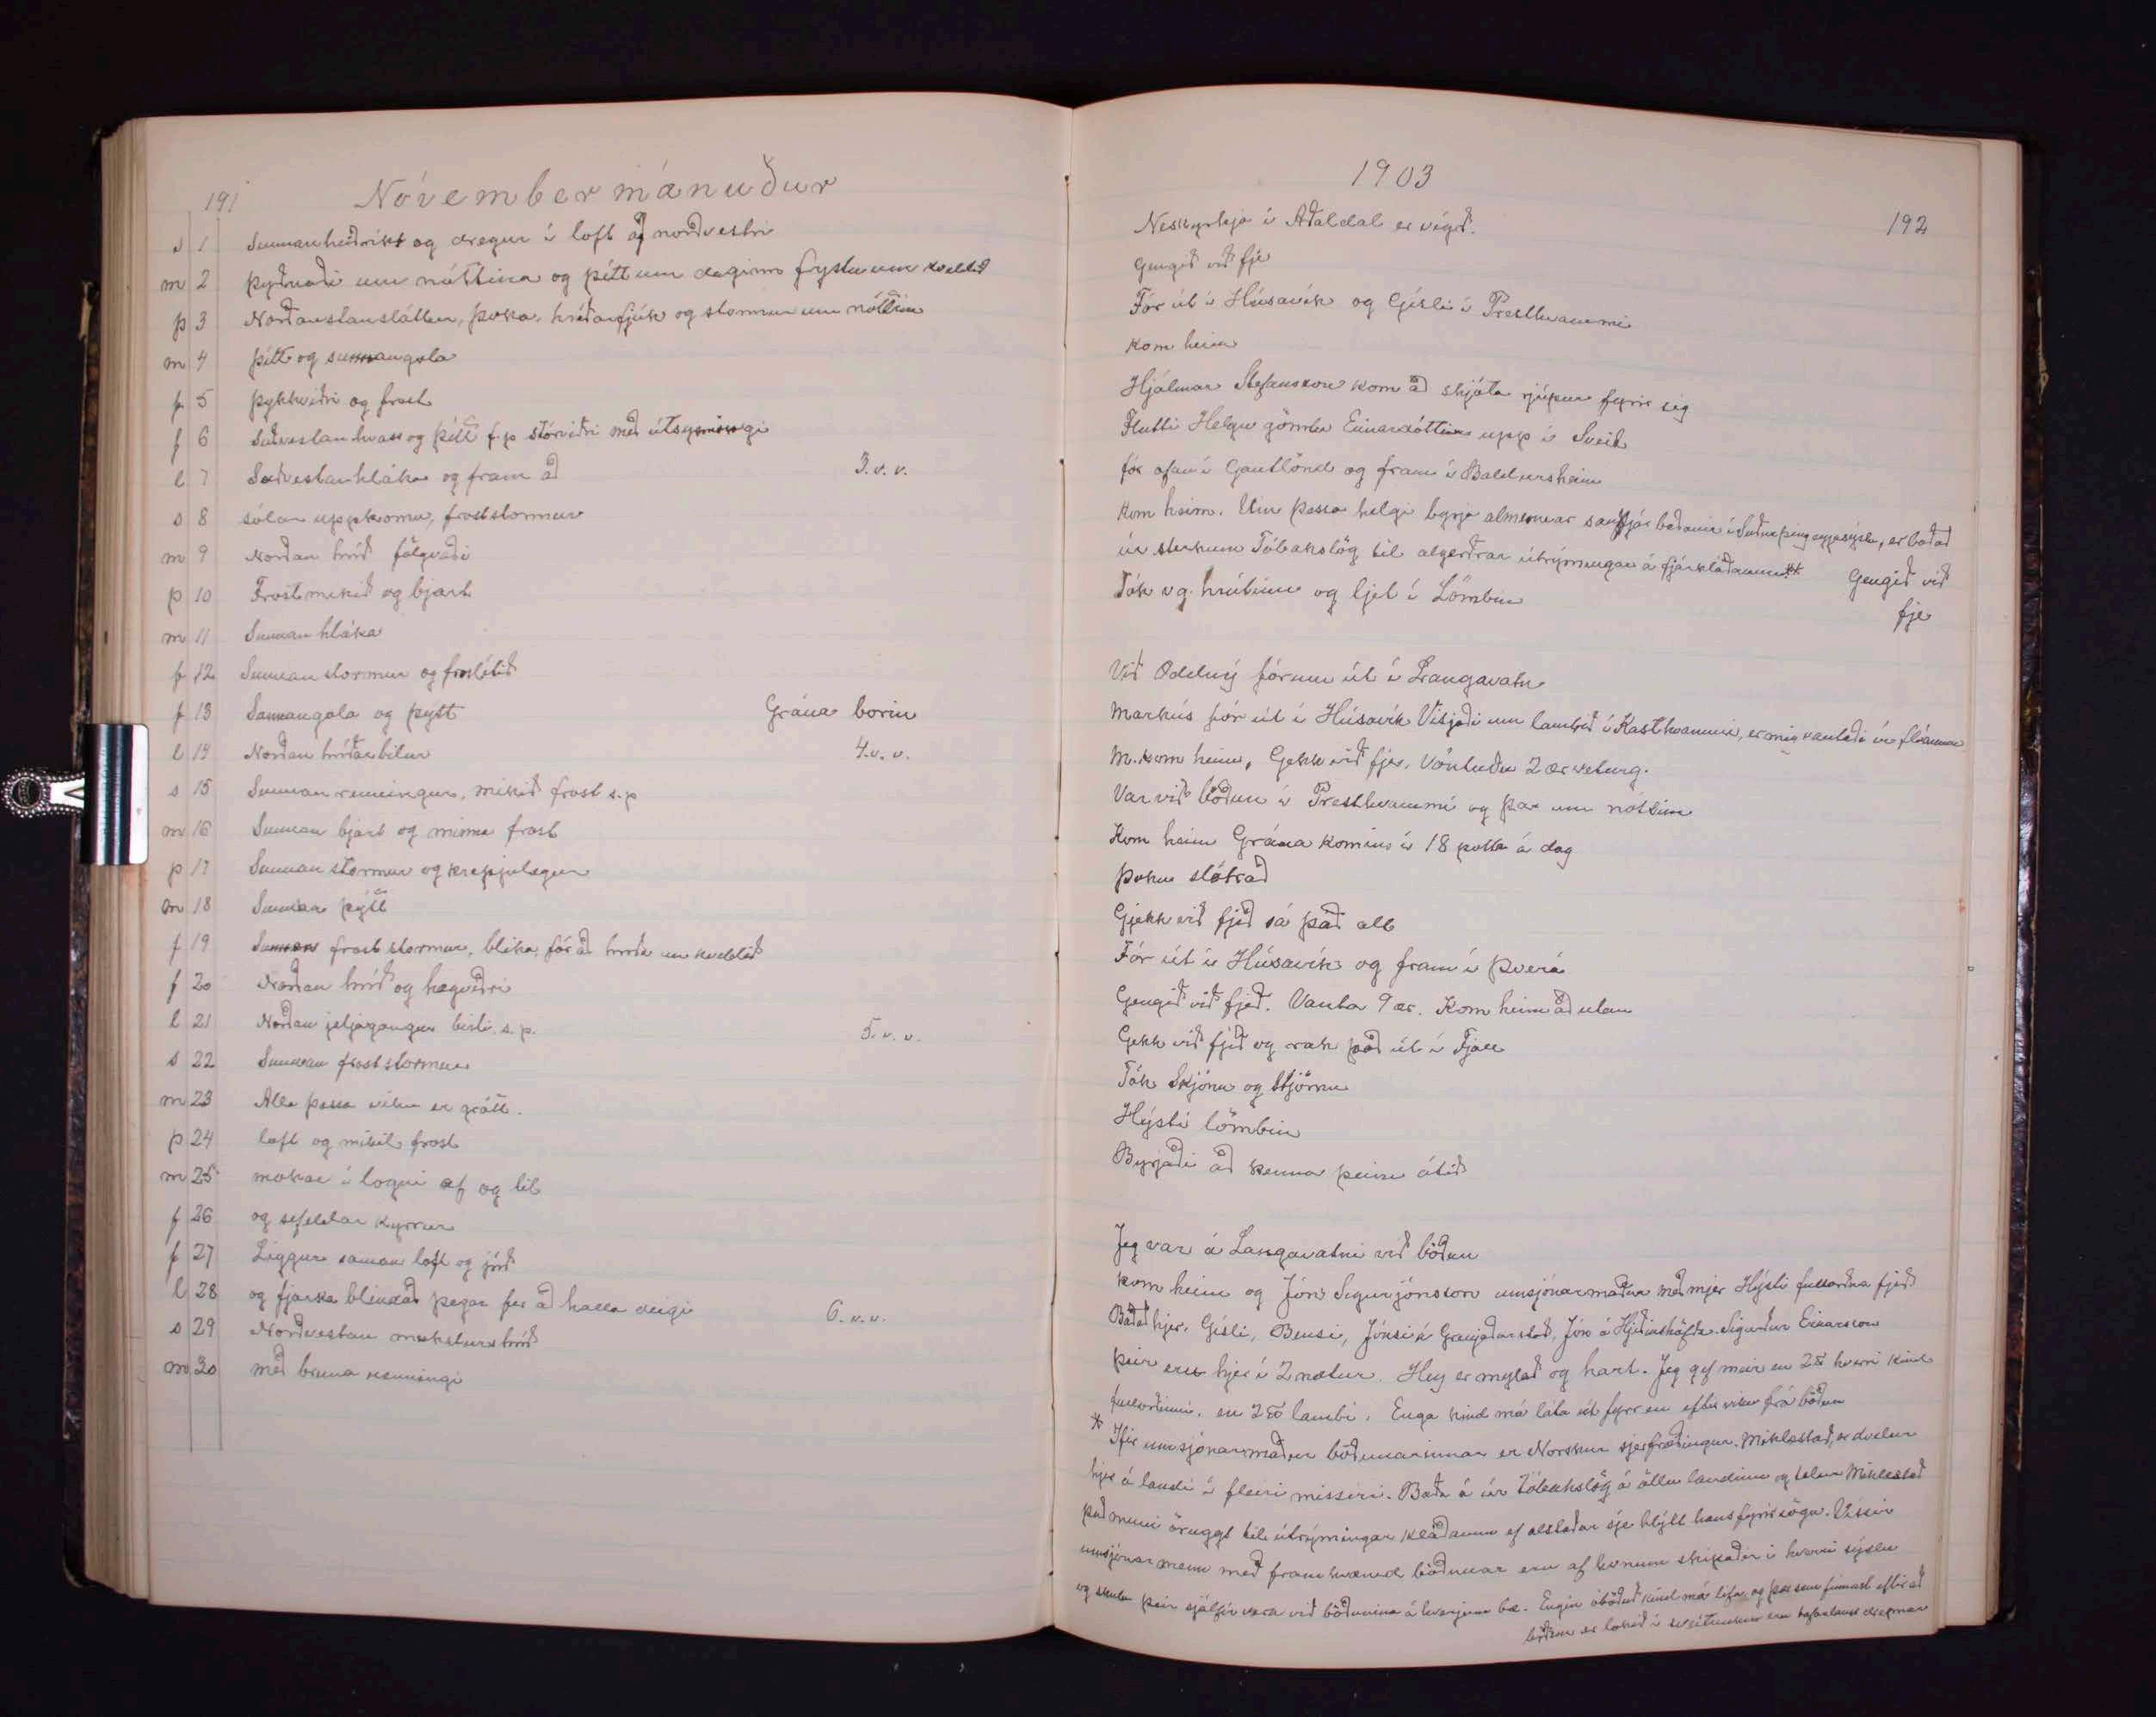 191
Nóvember mánuður
s 1 Sunnan heiðríkt og dregur í loft af norðvestri
m 2 þyðnaði um nóttina og þítt um daginn frystu um kveldið
þ 3 Norðanstansláttur, þoka, hríðarfjúk og stormur um nóttina
m 4 þítt og sunnangola
f 5 þykkviðri og frost
f 6 Suðvestan hvass og þítt f.p stórviðri með útsynningi
l 7 Suðvestan hláka og fram að 3. v. v.
s 8 sólar uppkomu, froststormur
m 9 Norðan hríð fölgvaði
þ 10 Frost mikið og bjart
m 11 Sunnan hláka
f 12 Sunnan stormur og frostlítið
f 13 Sunnangola og þýtt Grána borin
l 14 Norðan hríðarbilur 4. v. v.
s 15 Sunnan renningur, mikið frost s.p
m 16 Sunnan bjart og minna frost
þ 17 Sunnan stormur og krepjulegur
m 18 Sunnan þýtt
f 19 Sunnan frost stormur, blika, fór að hríða um kveldið
f 20 Norðan hríð og hægviðri
l 21 Norðan jeljagangur birti s.p. 5. v. v.
s 22 Sunnan froststormur
m 23 Alla þessa viku er grátt
þ 24 loft og mikil frost
m 25 mokar í logni af og til
f 26 og sifeldar kyrrur
f 27 Liggur saman loft og jörð
l 28 og fjarska blindað þegar fer að halla deigi 6. v. v.
s 29 Norðvestan moksturshríð
m 30 með bruna renningi
1903
192
Neskyrkja í Aðaldal er vígð.
Gengið við fje
Fór út í Húsavík og Gísli í Presthvammi
kom heim
Hjálmar Stefansson kom að skjóta rjúpur fyrir sig
Flutti Helgu gömlu Einarsdóttir upp í Sveit
fór ofan í Gautlönd og fram í Baldursheim
Kom heim. Um þessa helgi byrja almennar sauðfjár baðanir í Suðurþingeyjasýslu, er baðað
úr sterkum Tóbakslög til algerðrar útrýmingar á fjárkláðanum ** Gengið við
fje
Tók v g. hrútinn og ljet í Lömbin
Við Oddný fórum út í Langavatn
Markús fór út í Húsavík Vitjaði um lambið í Kasthvammi, er mig vantaði úr flánum
M. kom heim, Gekk við fje. Vöntuðu 2 ær veturg.
Var við böðun í Presthvammi og þar um nóttina
Kom heim Grána komin í 18 potta á dag
Þoku slátrað
Gjekk við fjeð sá það alt
Fór út í Húsavík og fram í Þverá
Gengið við fjeð. Vanta 9 ær. Kom heim að utan
Gekk við fjeð og rak það út í Fjall
Tók Skjónu og Stjörnu
Hýsti lömbin
Byrjaði að kenna þeim átið
Jeg var á Langavatni við böðun
kom heim og Jón Sigurjónsson umsjónarmaður með mjer Hýsti fullorðna fjeð
Baðað hjer. Gísli, Bensi, Jónsi á Grenjaðarstað, Jón á Hjeðinshöfða. Sigurður Einarsson
þeir eru hjer í 2 nætur. Hey er myglað og hart. Jeg gef meir en 2 ℔ hverri kind
fullorðinni. en 2 ℔ lambi. Enga kind má láta út fyrr en eftir viku frá böðun
* Ifir umsjónarmaður böðunarinnar er Norskur sjerfræðingur. Miklestað, er dvelur
hjer á landi í fleiri missiri. Baða á úr tóbakslög á öllu landinu og telur Miklestað
það muni öruggt til útrýmingar kláðanum ef alstaðar sje hlýtt hans fyrirsögn. Vissir
umsjónar menn með framkvæmd böðunar eru af honum skipaðir í hverri sýslu
og skulu þeir sjálfir vera við böðunina á hverjum bæ. Engin óböðuð kind má lifa, og þær sem finnast eftir að
böðun er lokið í sveitunum eru tafarlaust drepnar